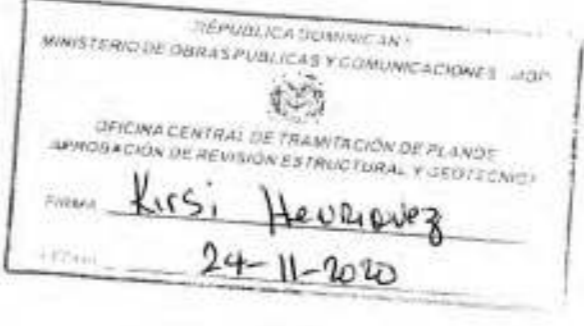 REPUBLICA DOMINICANA
MINISTERIO DE OBRAS PUBLICAS Y COMUNICACIONES
OFICINA CENTRAL DE TRAMITACIÓN DE PLANOS
APROBACIÓN DE REVISIÓN ESTRUCTURAL Y GEOTECNICA
FIRMA Kirsi Henriquez
FECHA 24-11-2020